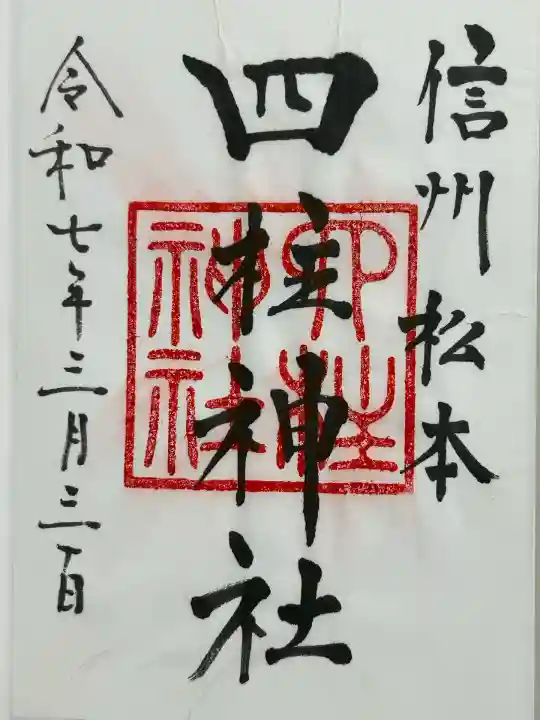 信州 松本
四柱神社
四柱神社
令和七年三月三百